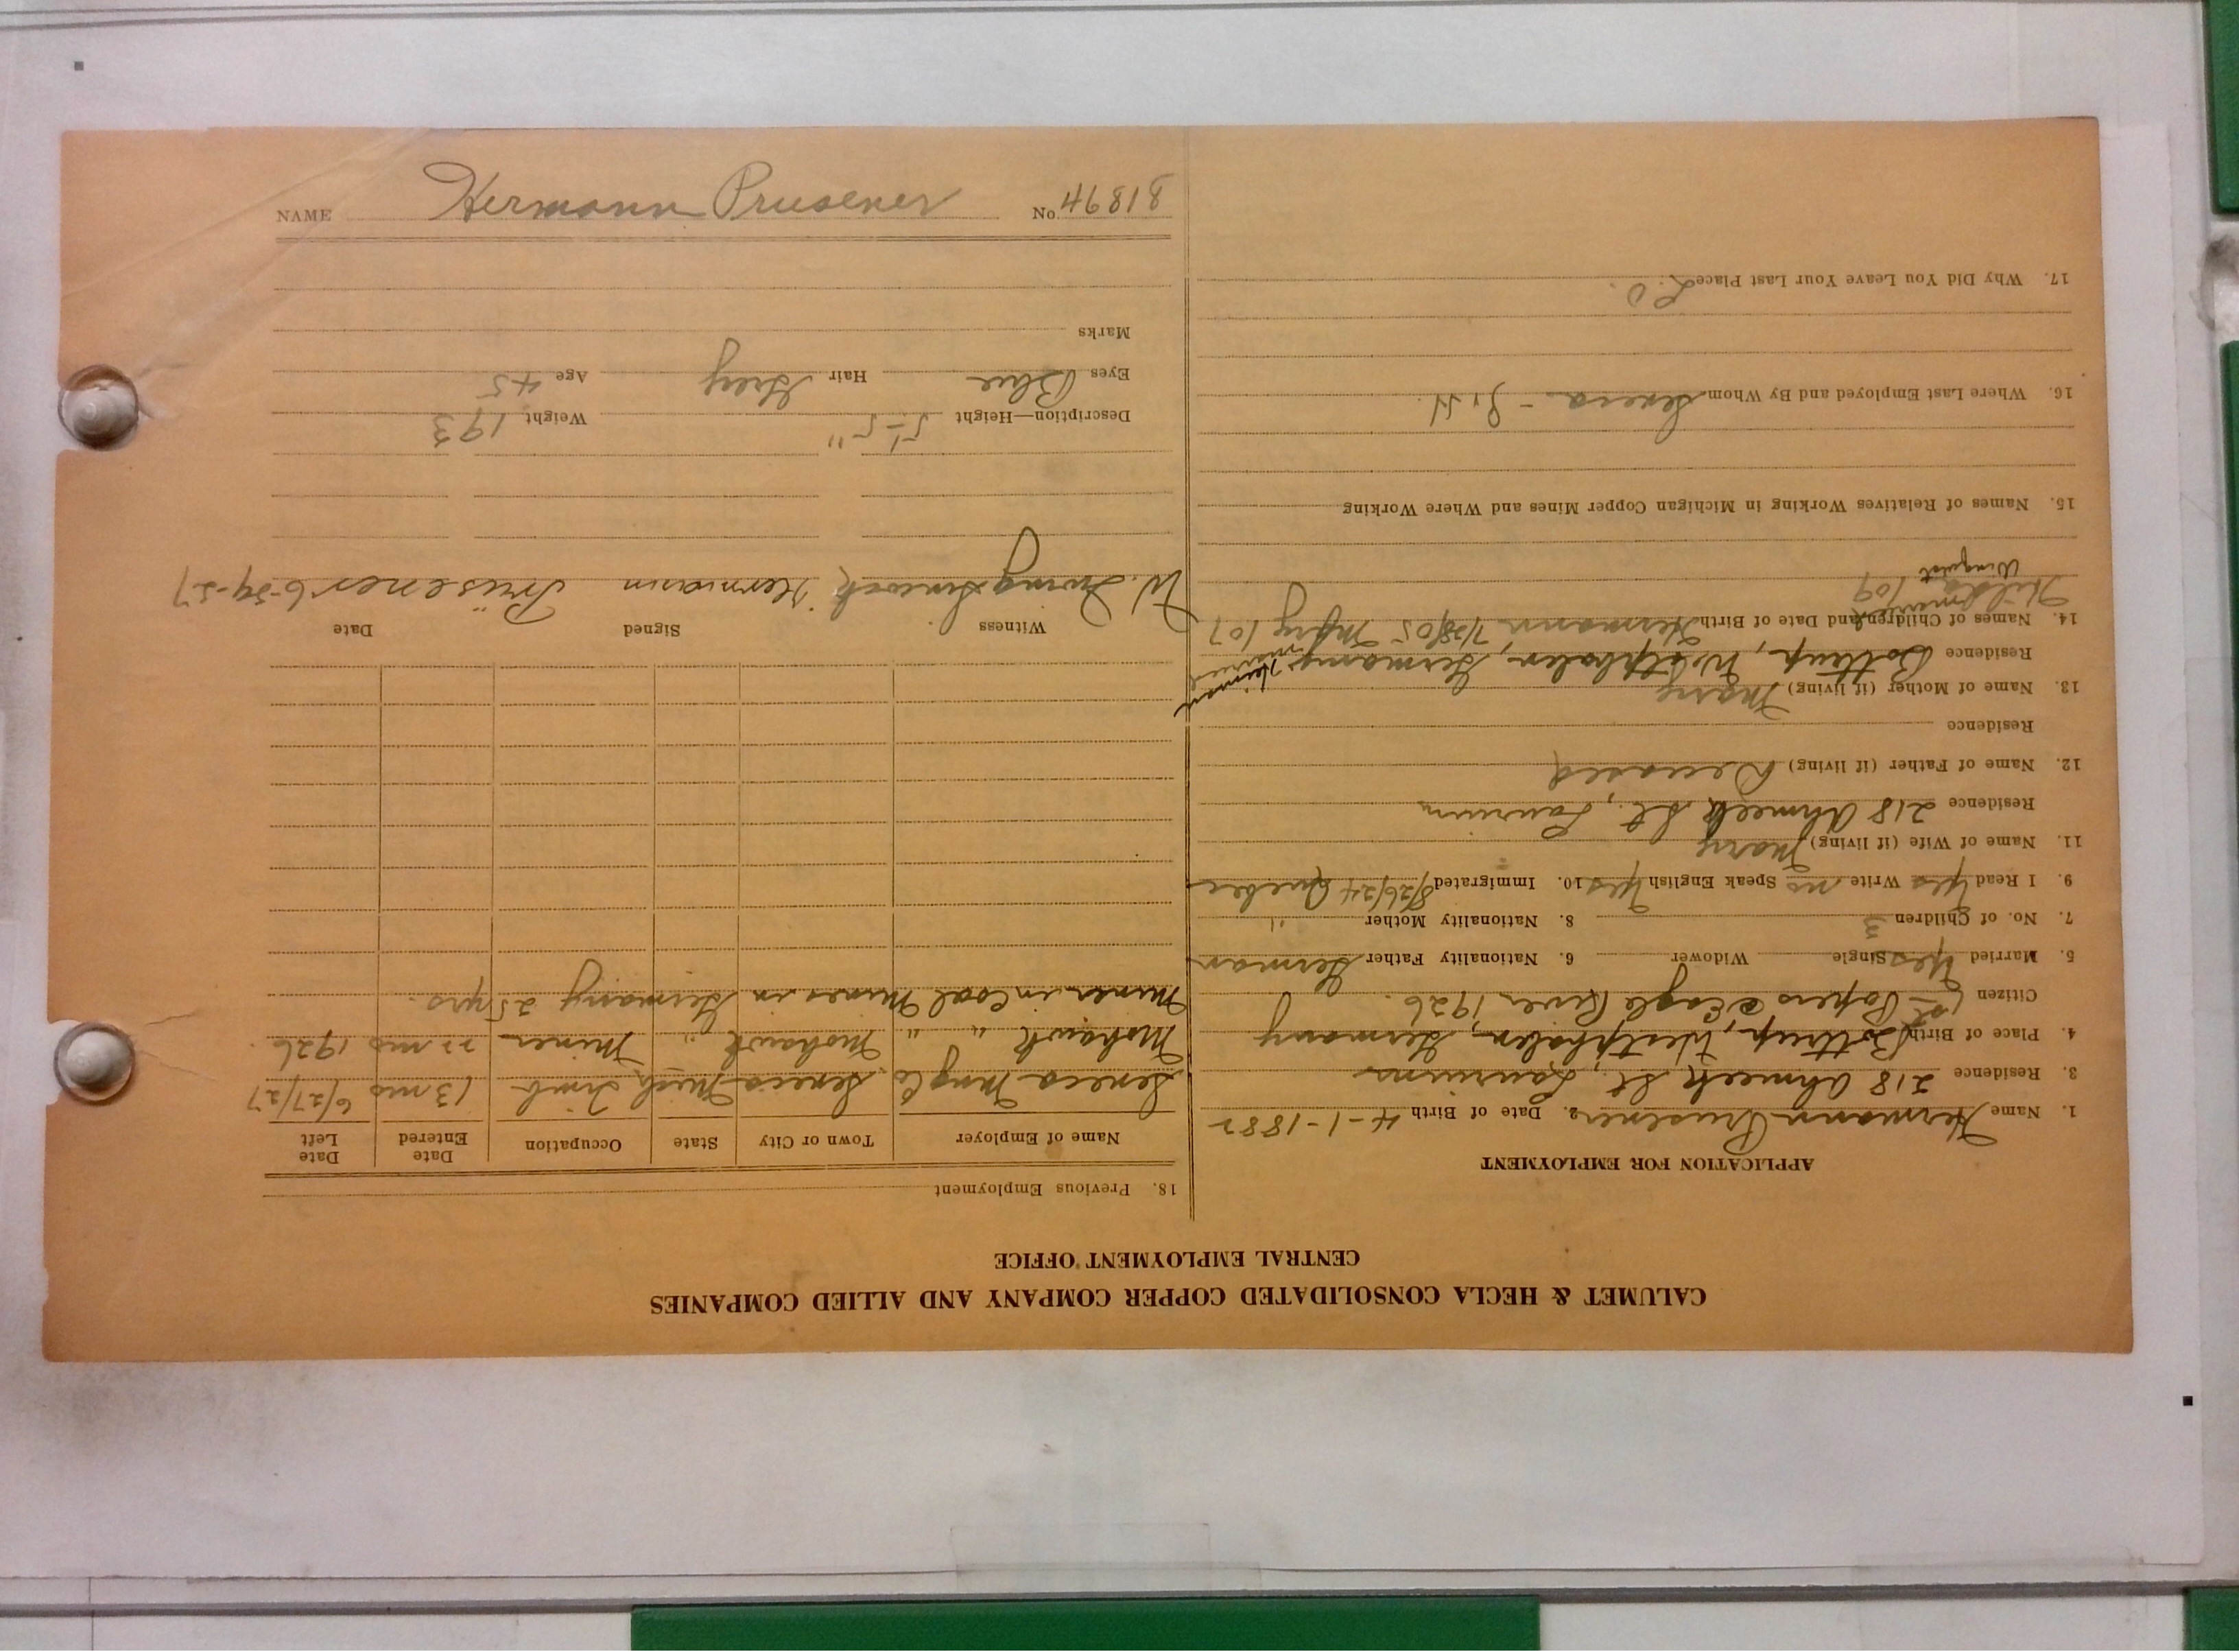 CALUMET & HECLA CONSOLIDATED COPPER COMPANY AND ALLIED COMPANIES
CENTRAL EMPLOYMENT OFFICE
APPLICATION FOR EMPLOYMENT
1. Name Hermann Prusener 2. Date of Birth 4-1-1882
3. Residence 218 Ahmeek St. Laurium
4. Place of Birth Bottrup, Westphalen, Germany
Citizen 1st Papers @ Eagle River 1926.
5. Married Yes Single Widower 6. Nationality Father German
7. No. of Children 3 8. Nationality Mother "
9. I Read Yes Write no Speak English Yes 10. Immigrated 8/26/24 Quebec
11. Name of Wife (if living) Mary
Residence 218 Ahmeek St., Laurium
12. Name of Father (if living) Deceased
Residence
13. Name of Mother (if living) Mary
Residence Bottrup, Westphalen, Germany
14. Names of Children and Date of Birth Hermann 7/28/05 Mary /07
married
Heiman
Hilda /09
married
Winquist
15. Names of Relatives Working in Michigan Copper Mines and Where Working
16. Where Last Employed and By Whom Seneca -
17. Why Did You Leave Your Last Place L.O.
18. Previous Employment
Name of Employer Town or City State Occupation Date Entered Date Left
Seneca Mng Co Seneca Mich Timb. 13 mos 6/27/27
Mohawk " " Mohawk " Miner 22 mos 1926.
Miner in Coal Mines in Germany 25 yrs.
Witness Signed Date
W. Irving Hermann Prüsener 6-29-27
Description—Height 5'-5" Weight 193
Eyes Blue Hair Grey Age 45
Marks
NAME Hermann Prusener No. 81894